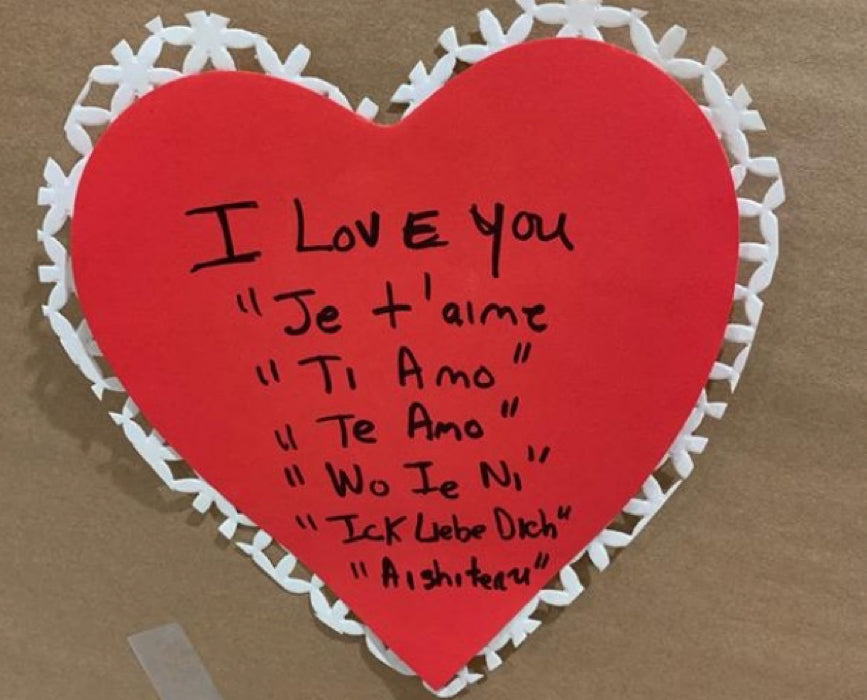 I LOVE you
"Je t'aime
"Ti Amo"
"Te Amo"
"Wo Ie Ni"
"Ick Liebe Dich"
"Aishiteru"